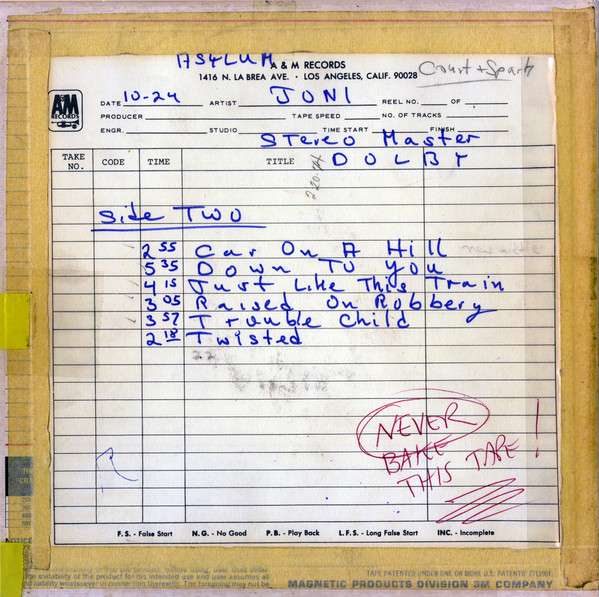 ASYLUM A & M RECORDS
1416 N. LA BREA AVE. · LOS ANGELES, CALIF. 90028
Court + Spark
A&M
RECORDS
DATE 10-24 ARTIST JONI REEL NO. OF
PRODUCER TAPE SPEED NO. OF TRACKS
ENGR. STUDIO TIME START FINISH
Stereo Master
TAKE NO. CODE TIME TITLE DOLBY
Side TWO
2 55 Car On A Hill
5 35 Down To You
4 15 Just Like This Train
3 05 Raised On Robbery
3 57 Trouble Child
2 18 Twisted
22
NEVER
BAKE
THIS TAPE!
F.S. - False Start N.G. - No Good P.B. - Play Back L.F.S. - Long False Start INC. - Incomplete
NOTICE
TAPE PATENTED UNDER ONE OR MORE U.S. PATENTS
MAGNETIC PRODUCTS DIVISION 3M COMPANY